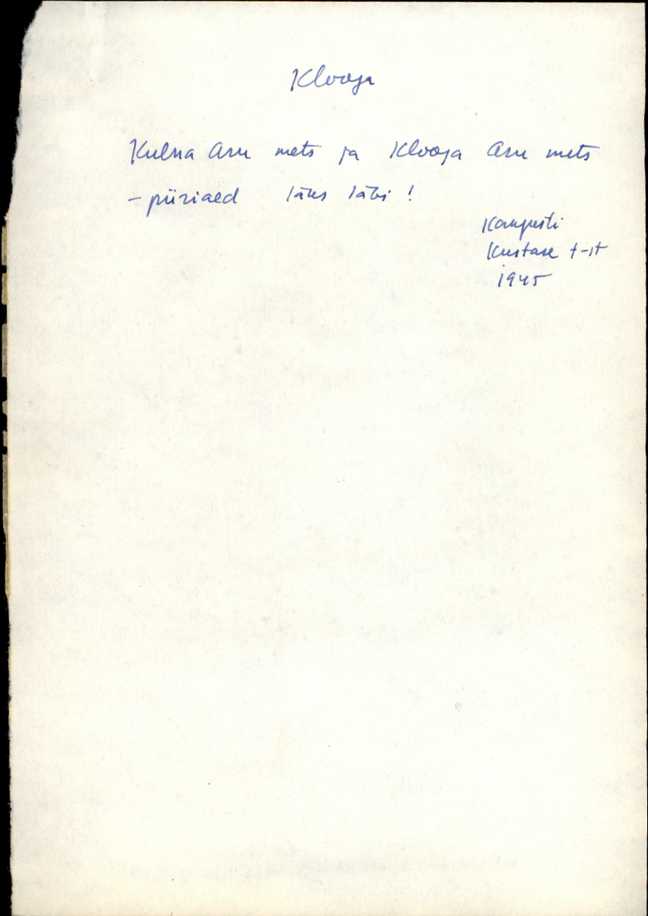 Klooga
Kulna Aru mets ja Klooga Aru mets
- piiriaed läks läbi!
Kangusti
Kustase t-st
1945